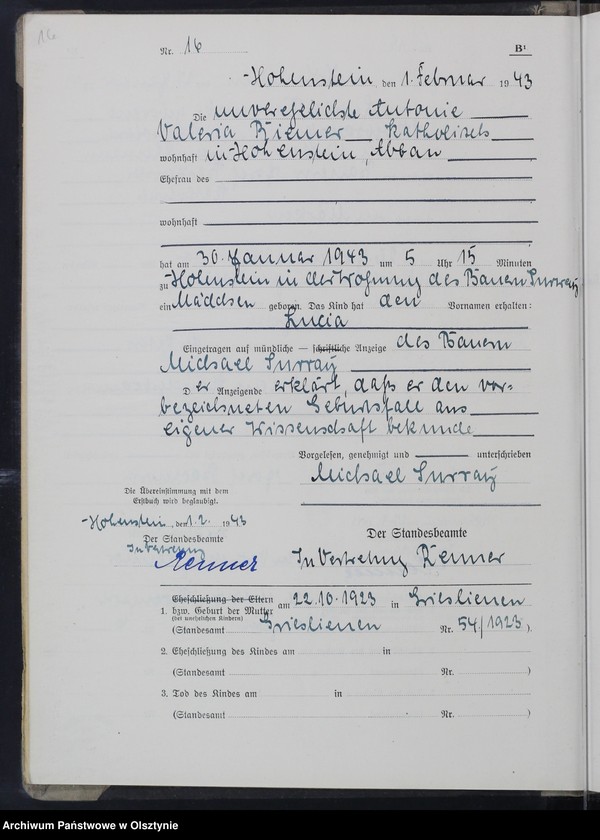 16
Nr. 16 B¹
Hohenstein, den 1. Februar 1943
Die unverehelichte Antonie
Valeria Riemer katholisch
wohnhaft in Hohenstein, Abbau
Ehefrau des
wohnhaft
hat am 30. Januar 1943 um 5 Uhr 15 Minuten
zu Hohenstein in der Wohnung des Bauern Surray
ein Mädchen geboren. Das Kind hat den Vornamen erhalten:
Lucia
Eingetragen auf mündliche — schriftliche Anzeige des Bauern
Michael Surray
D er Anzeigende erklärt, daß er den vor-
bezeichneten Geburtsfall aus
eigener Wissenschaft bekunde
Vorgelesen, genehmigt und unterschrieben
Michael Surray
Die Übereinstimmung mit dem
Erstbuch wird beglaubigt.
Hohenstein, den 1.2. 1943
Der Standesbeamte
In Vertretung
Renner
Der Standesbeamte
In Vertretung Renner
1. Eheschließung der Eltern
bzw. Geburt der Mutter am 22.10.1923 in Grieslienen
(bei unehelichen Kindern)
(Standesamt Grieslienen Nr. 54/1923).
2. Eheschließung des Kindes am in
(Standesamt Nr. )
3. Tod des Kindes am in
(Standesamt Nr. )
Archiwum Państwowe w Olsztynie